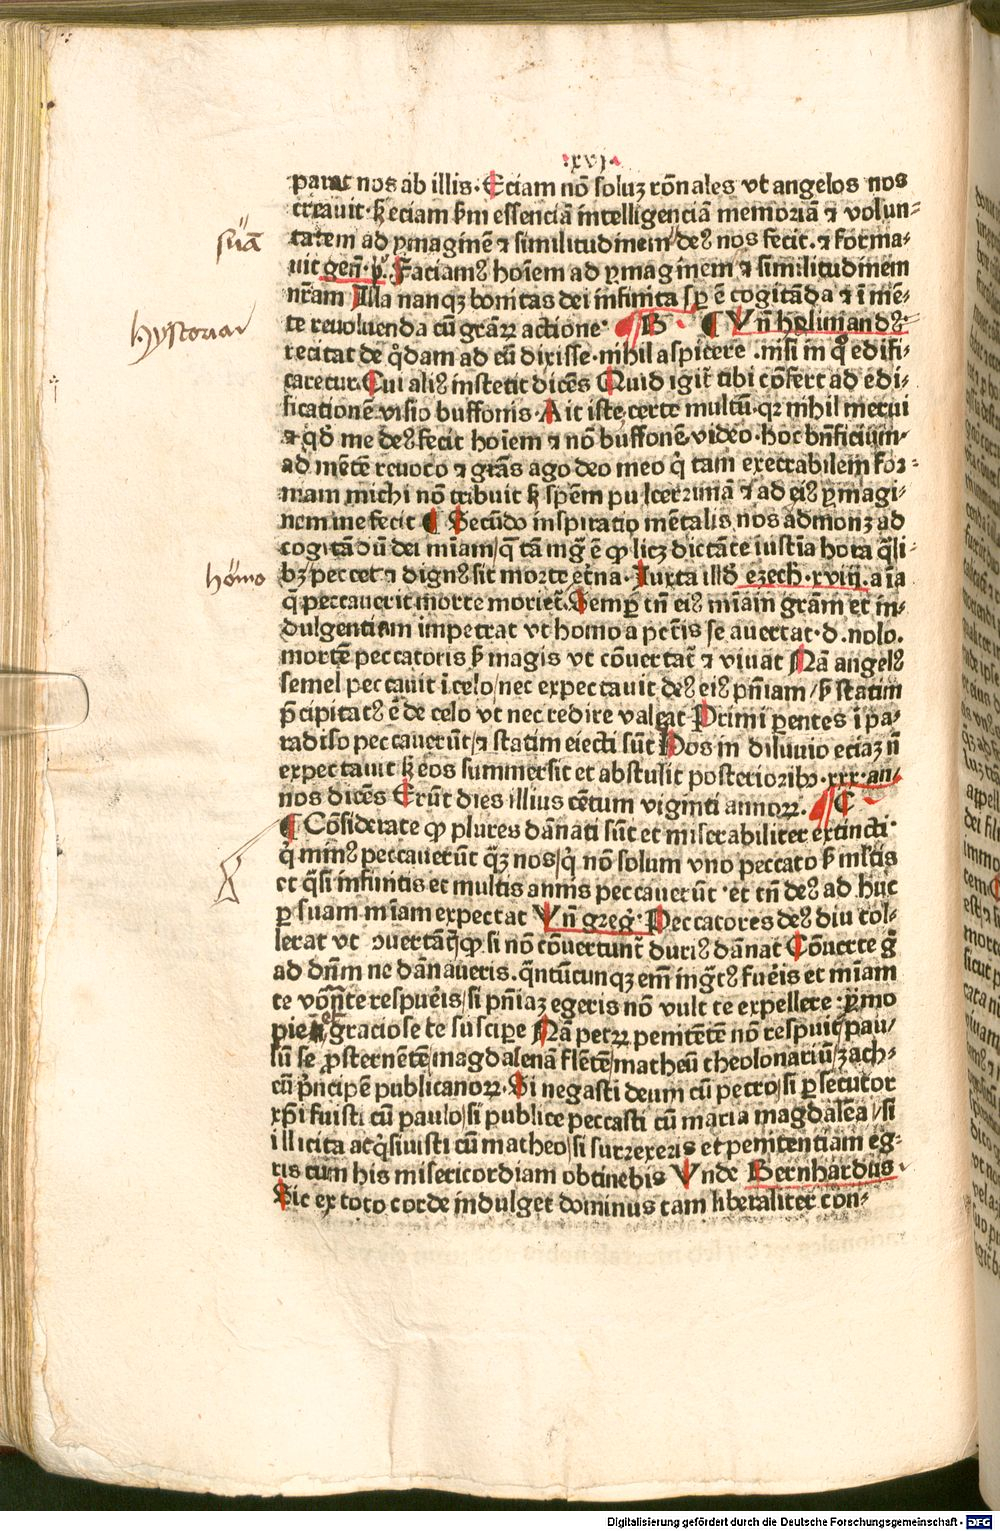 .xvj.
parat nos ab illis. Eciam nō soluꝫ rōnales vt angelos nos
creauit. ẜ eciam ẜm essenciā intelligenciā memoriā ⁊ volun-
suā
tatem ad ymaginē ⁊ similitudinem deꝰ nos fecit. ⁊ forma-
uit geñ. pº. Faciamꝰ hoīem ad ymaginem ⁊ similitudinem
nr̄am Illa nanqꝫ bonitas dei infinita sꝑ ē cogitāda ⁊ ī mē-
hystoriar
te reuoluenda cū grāꝝ actione B ¶ Vn̄ helimandꝰ
recitat de q̊dam ad eū dixisse. nihil aspicere .nisi in qͦ edifi-
caretur. Cui aliꝰ institit dicēs Quid igit̄ tibi cōfert ad edi-
ficationē visio buffonis. Ait iste certe multū. qꝛ nihil merui
⁊ qd̄ me deꝰ fecit hoīem ⁊ nō buffonē video. hoc bn̄ficium
ad mētē reuoco ⁊ grās ago deo meo q̇ tam execrabilem for-
mam michi nō tribuit ẜ spēm pulcerrimā ⁊ ad eiꝰ ymagi-
nem me fecit ¶ Secūdo inspiratio mētalis nos admonꝫ ad
cogitādū dei mīam/ q̄ tā mḡ ē ꝙ licꝫ dictāte iusticīa hora q̄li-
homo
bꝫ peccet ⁊ dignꝰ sit morte etna. Iuxta illd̄ ezech. xviij. aīa
q̄ peccauerit morte moriet̄. Semꝑ tn̄ eiꝰ mīam grām et in-
dulgentiam impetrat vt homo a pctīs se auertat. d. nolo.
mortē peccatoris ẜ magis vt cōuertat̄ ⁊ viuat Nā angelꝰ
semel peccauit ī celo/ nec expectauit deꝰ eiꝰ pn̄iam/ ẜ statim
p̄cipitatꝰ ē de celo vt nec redire valeat Primi ꝑentes ī pa-
radiso peccauerūt/ ⁊ statim eiecti sūt Nos in diluuio eciaꝫ n̄
expectauit ẜ eos summersit et abstulit posterioribꝰ. xxx. an/
nos dicēs Erūt dies illius cētum viginti annoꝝ. C
¶ Cōsiderate ꝙ plures dānati sūt et miserabiliter extincti.
q̇ minꝰ peccauerūt q̄ꝫ nos/ q̇ nō solum vno peccato ẜ ml̄tis
et q̄si infinitis et multis annis peccauerūt. et tn̄ deꝰ ad huc
ꝑ suam mīam expectat Vn̄ greḡ. Peccatores deꝰ diu tol-
lerat vt ↄuertāt̄/ ꝙ si nō cōuertunt̄ duriꝰ dānat Cōuerte ḡ
ad dn̄m ne dānaueris. q̄ntūcunqꝫ em̄ ingͣtꝰ fueīs et mīam
te vocān̄te respueīs/ si pn̄iaꝫ egeris nō vult te expellere. ymo
pie et graciose te suscipe Nā petꝝ penitētē nō respuit/ pau/
lū se ꝓsternētē/ magdalenā flētē/ matheū theolonariū/ zach-
eū pn̄cipē publicanoꝝ. Si negasti deum cū petro/ si ꝑsecutor
xp̄i fuisti cū paulo/ si publice peccasti cū maria magdalēa/ si
illicita acq̄siuisti cū matheo/ si surrexeris et penitentiam eg-
ris cum his misericordiam obtinebis Vnde Bernhardus
Sic ex toto corde indulget dominus tam liberaliter con-
Digitalisierung gefördert durch die Deutsche Forschungsgemeinschaft - DFG